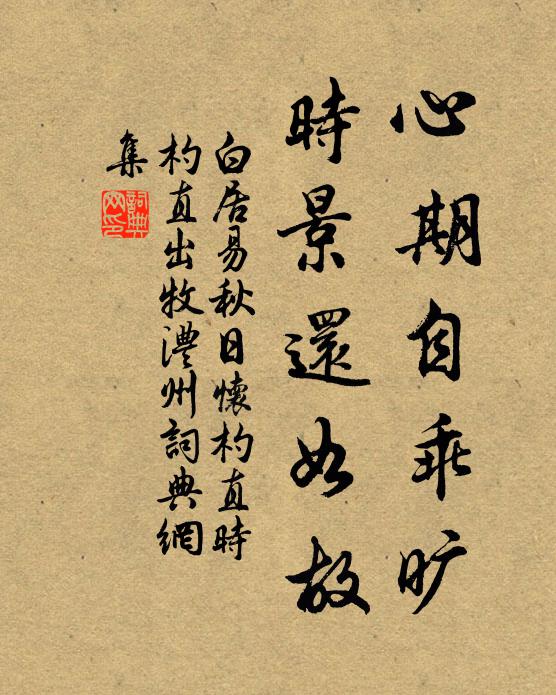 心期自乖旷
時景還如故
白居易秋日懷杓直時
杓直出牧澧州詞典網
集
詞典網印